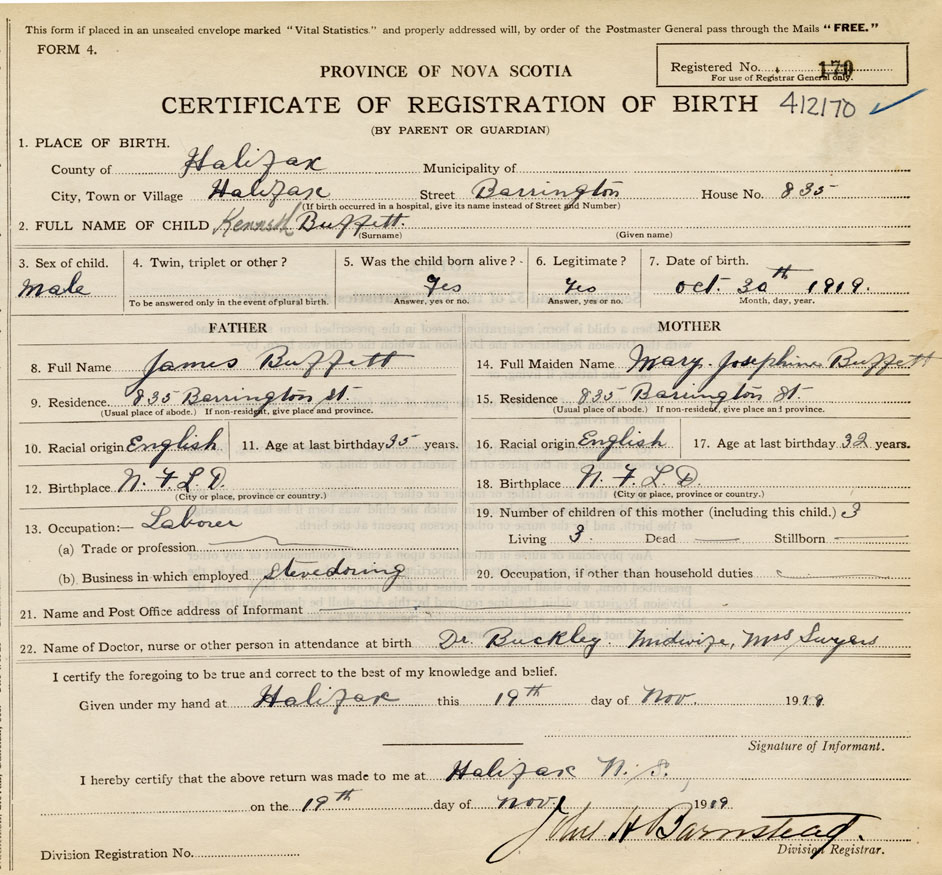 This form if placed in an unsealed envelope marked "Vital Statistics" and properly addressed will, by order of the Postmaster General pass through the Mails "FREE."
FORM 4.
Registered No. 170
For use of Registrar General only.
PROVINCE OF NOVA SCOTIA
CERTIFICATE OF REGISTRATION OF BIRTH 412170
(BY PARENT OR GUARDIAN)
1. PLACE OF BIRTH.
County of Halifax Municipality of
City, Town or Village Halifax Street Barrington House No. 835
(If birth occurred in a hospital, give its name instead of Street and Number)
2. FULL NAME OF CHILD Kenneth Buffett.
(Surname) (Given name)
3. Sex of child. 4. Twin, triplet or other? 5. Was the child born alive? 6. Legitimate? 7. Date of birth.
Male Yes Yes Oct. 30th 1919.
To be answered only in the event of plural birth. Answer, yes or no. Answer, yes or no. Month, day, year.
FATHER MOTHER
8. Full Name James Buffett 14. Full Maiden Name Mary Josephine Buffett
9. Residence. 835 Barrington St. 15. Residence 835 Barrington St.
(Usual place of abode.) If non-resident, give place and province. (Usual place of abode.) If non-resident, give place and province.
10. Racial origin English 11. Age at last birthday 35 years. 16. Racial origin English 17. Age at last birthday 32 years.
12. Birthplace N. F. L. D. 18. Birthplace N. F. L. D.
(City or place, province or country.) (City or place, province or country.)
13. Occupation:— Laborer 19. Number of children of this mother (including this child.) 3
(a) Trade or profession Living 3. Dead Stillborn
(b). Business in which employed Stevedoring 20. Occupation, if other than household duties
21. Name and Post Office address of Informant
22. Name of Doctor, nurse or other person in attendance at birth Dr. Buckley. Midwife, Mrs
I certify the foregoing to be true and correct to the best of my knowledge and belief.
Given under my hand at Halifax this 19th day of Nov. 1919.
Signature of Informant.
I hereby certify that the above return was made to me at Halifax N. S.
on the 19th day of Nov. 1919.
John H Barnstead.
Division Registration No. Division Registrar.